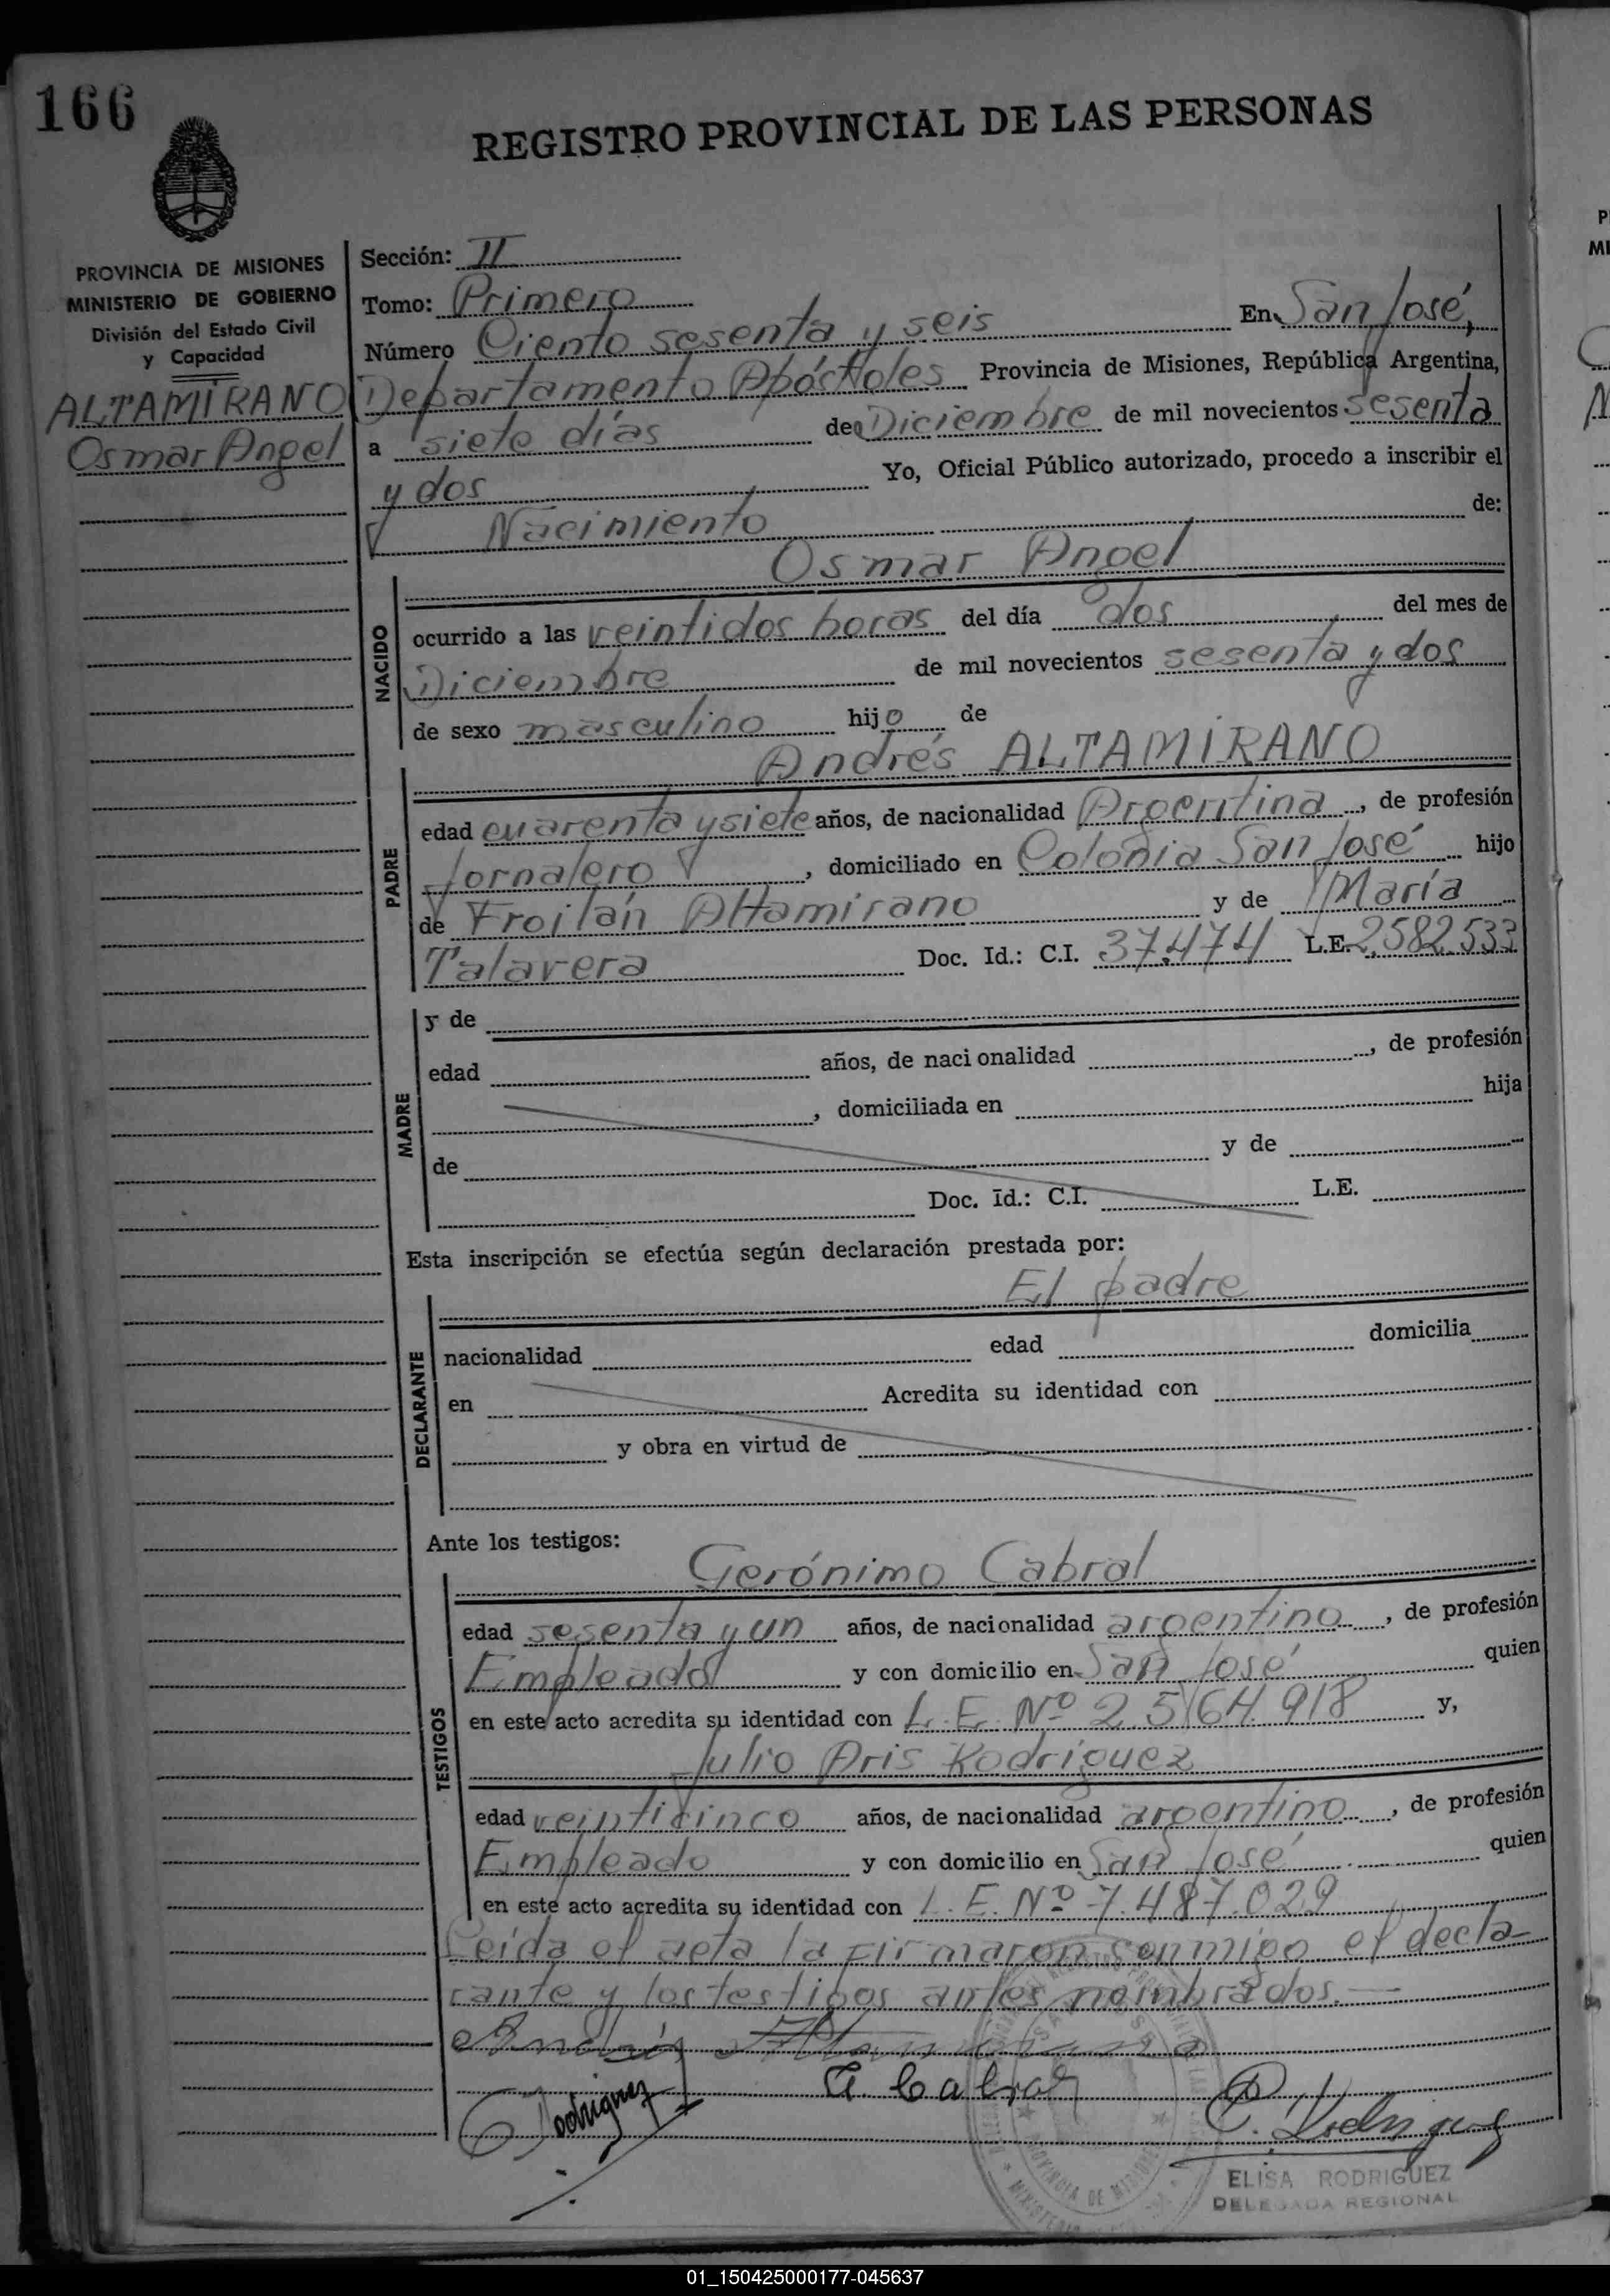 166
REGISTRO PROVINCIAL DE LAS PERSONAS
PROVINCIA DE MISIONES
MINISTERIO DE GOBIERNO
División del Estado Civil
y Capacidad
ALTAMIRANO
Osmar Angel
Sección: II
Tomo: Primero
Número Ciento sesenta y seis En San José,
Departamento Apóstoles Provincia de Misiones, República Argentina,
a siete días de Diciembre de mil novecientos sesenta
y dos Yo, Oficial Público autorizado, procedo a inscribir el
Nacimiento de:
Osmar Angel
NACIDO
ocurrido a las veintidos horas del día dos del mes de
Diciembre de mil novecientos sesenta y dos
de sexo masculino hijo de
Andrés ALTAMIRANO
PADRE
edad cuarenta y siete años, de nacionalidad Argentina, de profesión
Jornalero, domiciliado en Colonia San José hijo
de Froilán Altamirano y de María
Talavera Doc. Id.: C.I. 37.474 L.E. 2.582.533
MADRE
y de
edad años, de nacionalidad , de profesión
, domiciliada en hija
de y de
Doc. Id.: C.I. L.E.
Esta inscripción se efectúa según declaración prestada por:
El padre
DECLARANTE
nacionalidad edad domicilia
en Acredita su identidad con
y obra en virtud de
Ante los testigos:
Gerónimo Cabral
TESTIGOS
edad sesenta y un años, de nacionalidad argentino, de profesión
Empleado y con domicilio en San José quien
en este acto acredita su identidad con L.E. Nº 2.564.918 y,
Julio Aris Rodríguez
edad veinticinco años, de nacionalidad argentino, de profesión
Empleado y con domicilio en San José quien
en este acto acredita su identidad con L.E. Nº 7.487.029
Leída el acta la firmaron conmigo el decla-
rante y los testigos antes nombrados.—
Andrés Altamirano
Rodriguez G. Cabral Rodriguez
ELISA RODRIGUEZ
DELEGADA REGIONAL
PROVINCIA DE MISIONES
01_150425000177-045637